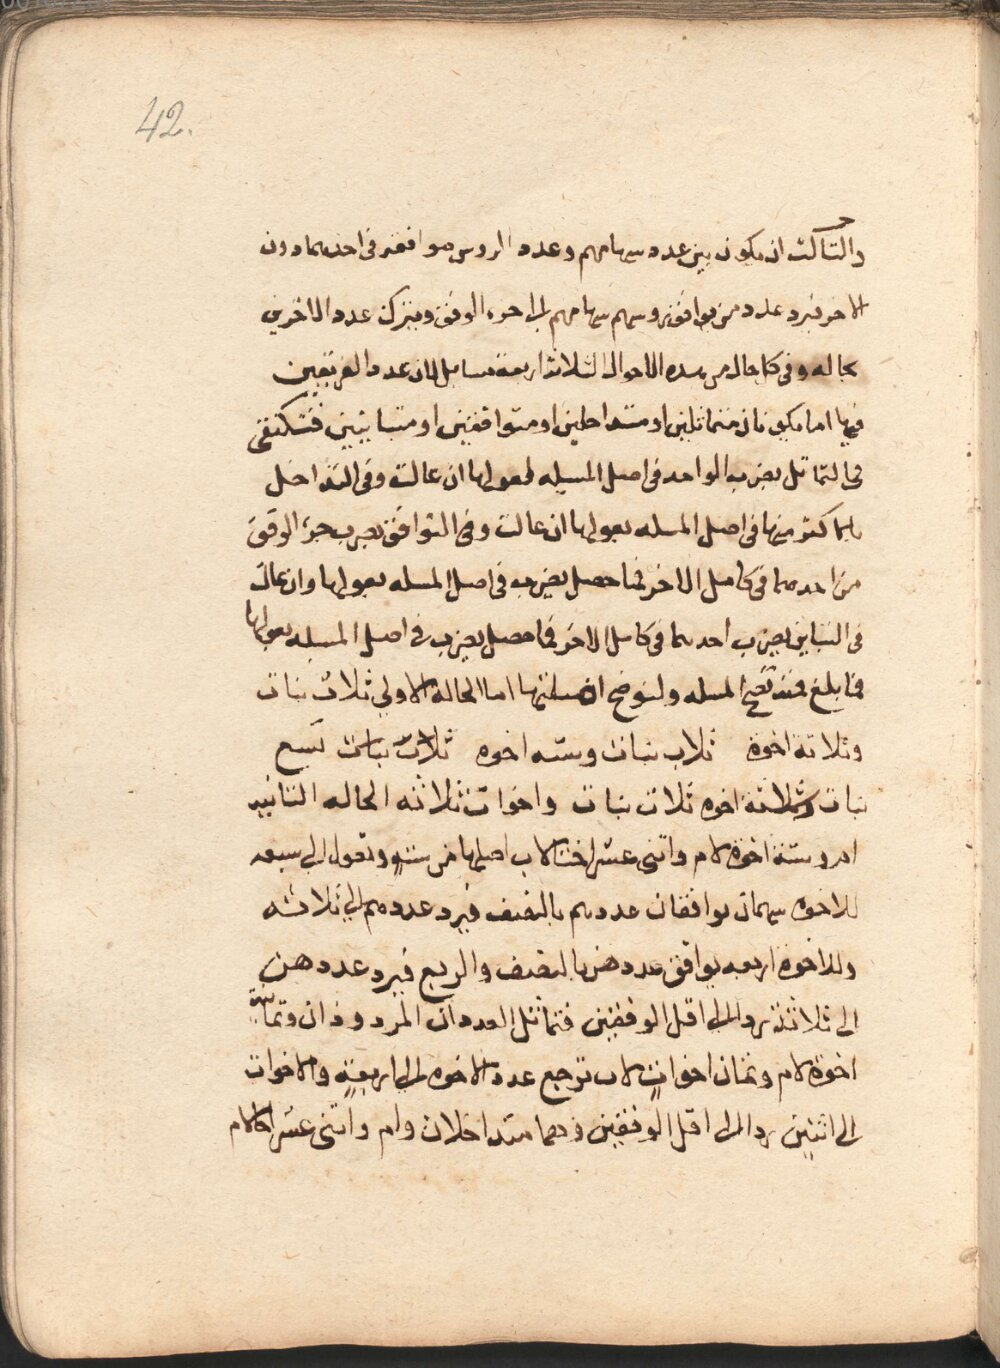 42.
والثالث ان يكون بين عدد سهامهم وعدد الروس موافقه فى احدهما دون
الاخر فيرد عدد من يوافق روسهم سهامهم الى جزء الوفق ويترك عدد الاخرين
بحاله وفى كل حال من هذه الاحوال الثلاث اربعة مسايل لان عدد الفريقين
فيها اما يكونان متماثلين او متداخلين او متوافقين او متباينين فتكتفى
فى التماثل بضرب الواحد فى اصل المسيله بعولها ان عالت وفى التداخل
باكثر منها فى اصل المسله بعولها ان عالت وفى التوافق بضرب جزء الوفق
من احدهما فى كامل الاخر فما حصل يضرب فى اصل المسله بعولها وان عالت
فى التباين يضرب احدهما فى كامل الاخر فما حصل يضرب فى اصل المسله بعولها
فما بلغ فمنه تصح المسله ولنوضح امثلتها اما الحالة الاولى ثلاث بنات
وثلاثة اخوة ثلاث بنات وسته اخوه ثلاث بنات تسع
بنات وثلاثة اخوه ثلاث بنات واخوات ثلاثه الحاله الثانيه
ام وستة اخوة لام واثنى عشر اختا لاب اصلها من ستةٍ وتعول الى سبعه
للاخوه سهمان يوافقان عددهم بالنصف فيرد عددهم الى ثلاثه
وللاخوة اربعه يوافق عددهن بالنصف والربع فيرد عددهن
الى ثلاثة ردا الى اقل الوفقين فتماثل العددان المردودان وثمانية
اخوة لام وثمان اخواتٍ لاب ترجع عدد الاخوه الى اربعةٍ والاخوات
الى اثنين ردا الى اقل الوفقين وهما متداخلان وام واثنى عشر اخا لام